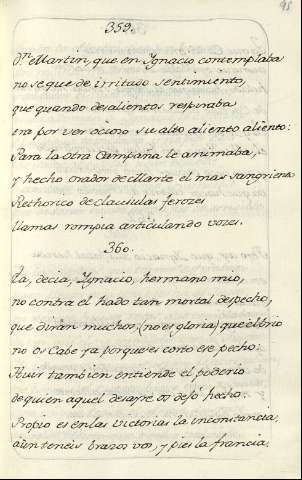 95
359.
Dn Martin, que en Ignacio contemplaba
no se que de irritado sentimiento,
que quando desalientos respiraba
era por ver ocioso su alto aliento:
Para la otra Campaña le animaba,
y hecho orador de Marte el mas sangriento
Rethorico de clausulas ferozes
llamas rompia articulando vozes.
360.
Ea, decia, Ignacio, hermano mio,
no contra el hado tan mortal despecho,
que diràn muchos, (no es gloria) que el brio
no os Cabe ya porque es corto ese pecho:
Huir tambien entiende el poderio
de quien aquel desayre os dejó hecho.
Propio es en las victorias la inconstancia,
aùn teneis brazos vos, y pies la francia.